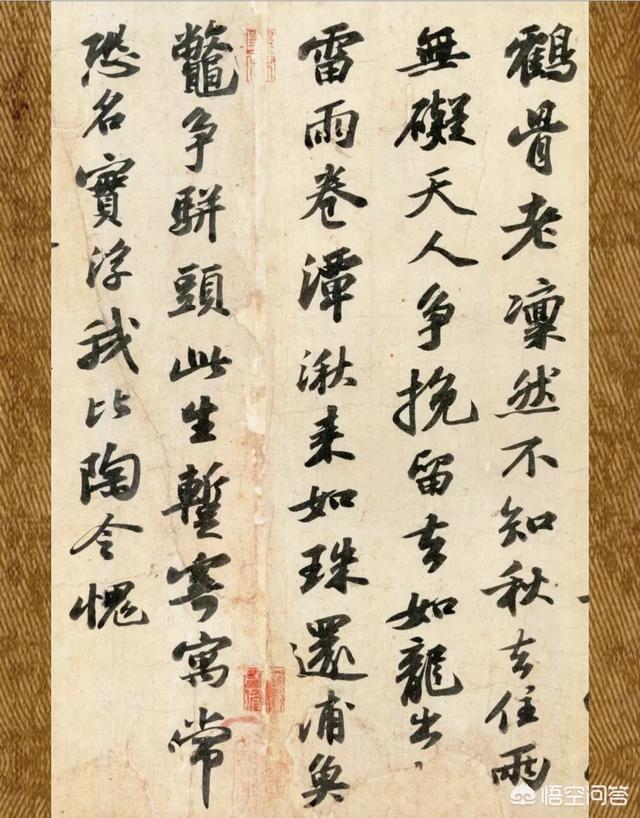 鶴骨老凛然不知秋去住兩
無礙天人争挽留去如龍出
雷雨卷潭湫来如珠還浦魚
鼈争駢頭此生蹔寄寓常
恐名實浮我比陶令愧
悟空问答